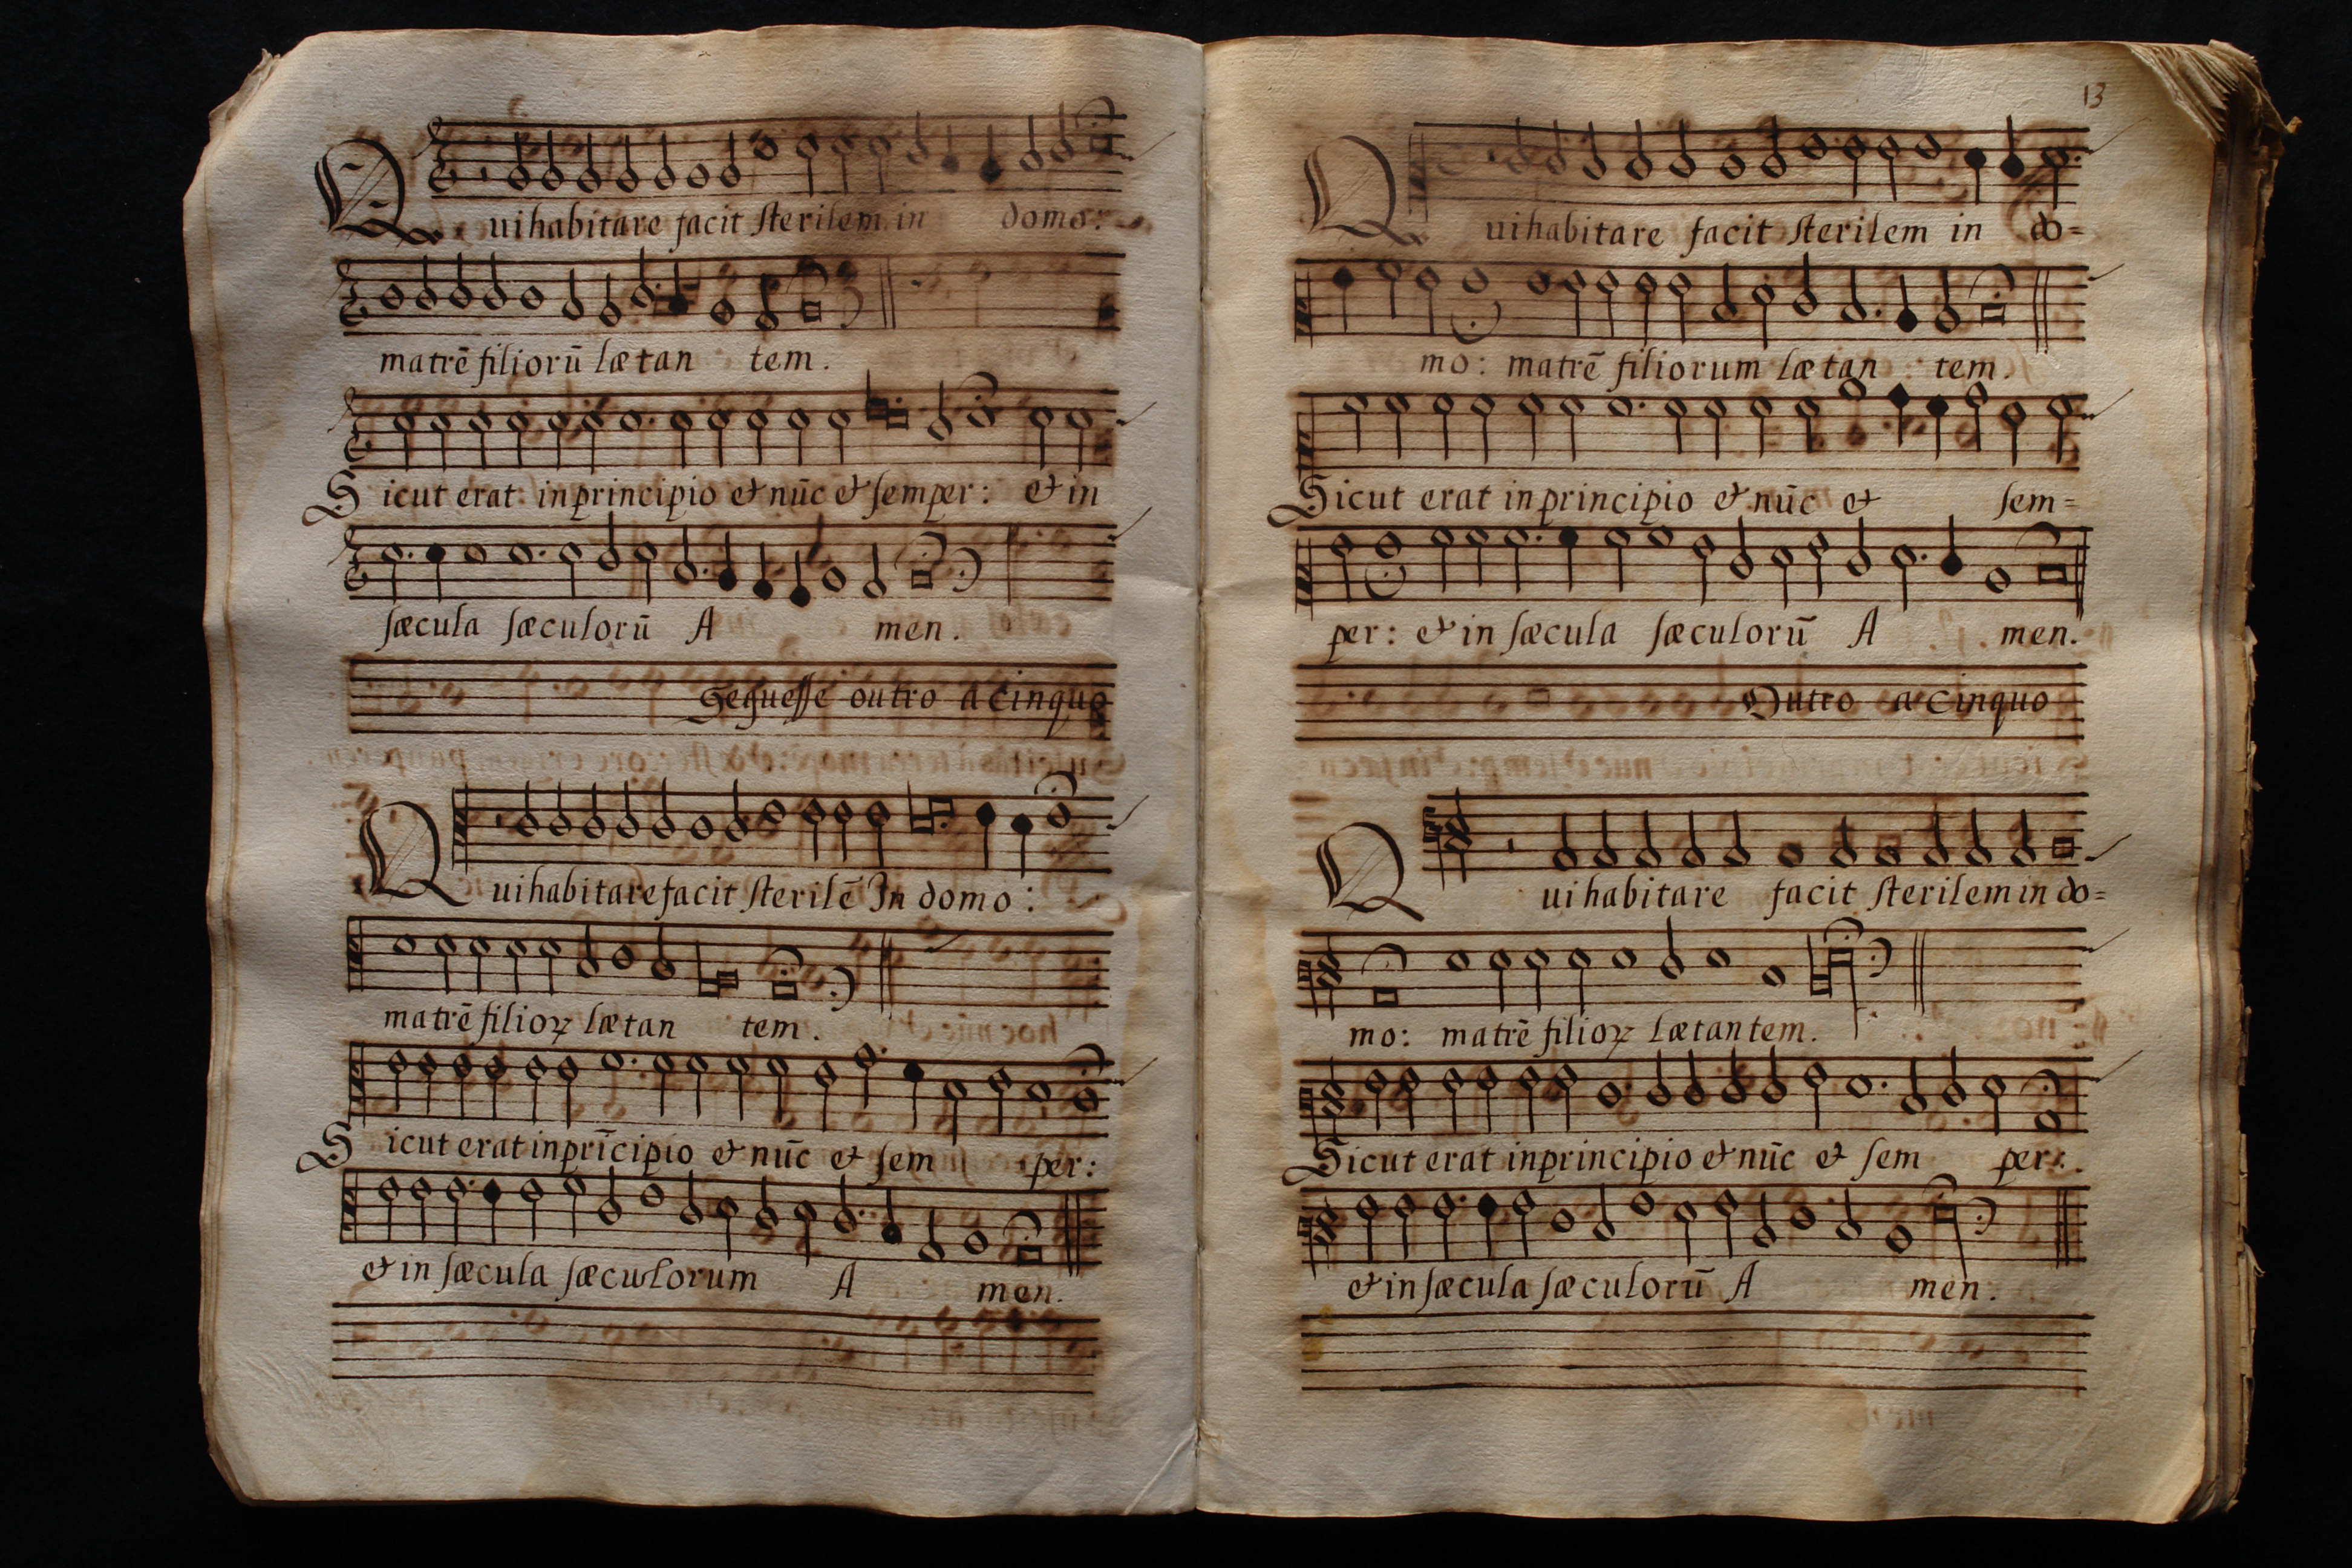 Qui habitare facit sterilem in domo:
matrē filiorū lætan tem.
Sicut erat in principio & nūc & semper: & in
sæcula sæculorū A men.
Seguesse outro a cinquo
Qui habitare facit sterilē In domo:
matrē filioꝝ lætan tem.
Sicut erat in prīcipio & nūc & sem per:
& in sæcula sæculorum A men.
13
Qui habitare facit sterilem in do=
mo: matrē filiorum lætan tem.
Sicut erat in principio & nūc & sem=
per: & in sæcula sæculorū A men.
Outro a cinquo
Qui habitare facit sterilem in do=
mo: matrē filioꝝ lætantem.
Sicut erat in principio & nūc & sem per:
& in sæcula sæculorū A men.